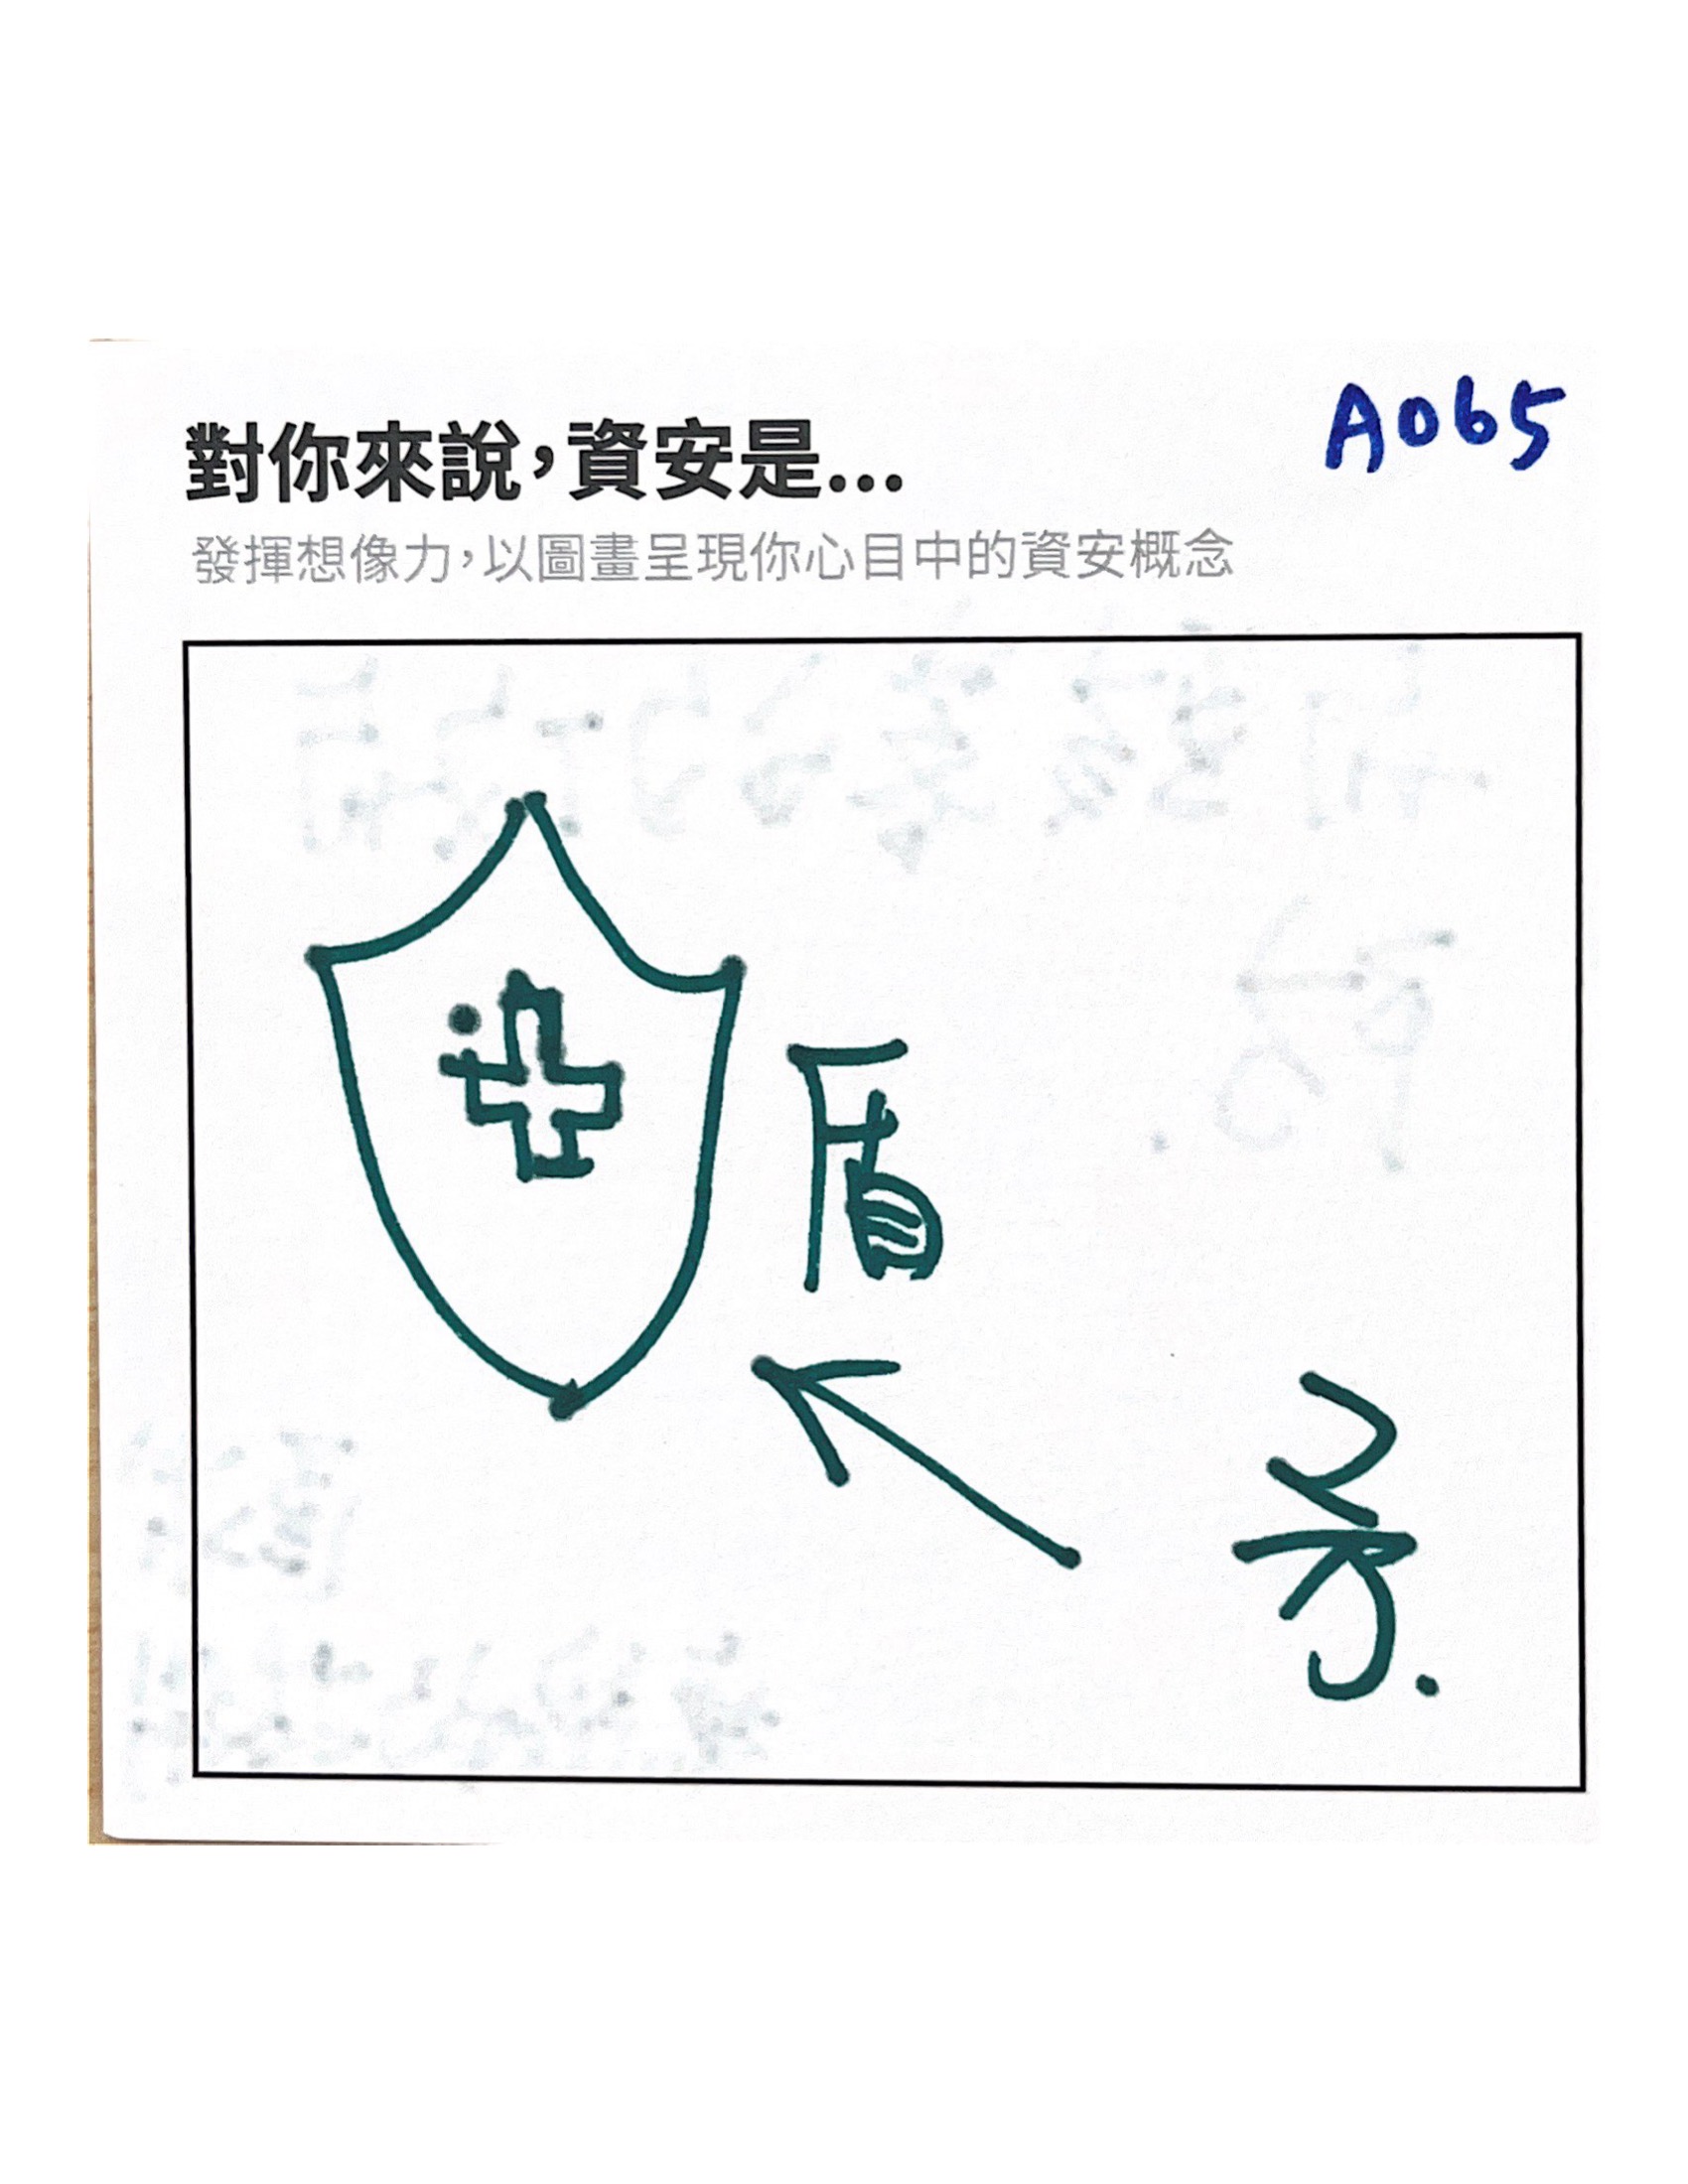 A065
對你來說,資安是...
發揮想像力,以圖畫呈現你心目中的資安概念
盾
矛.